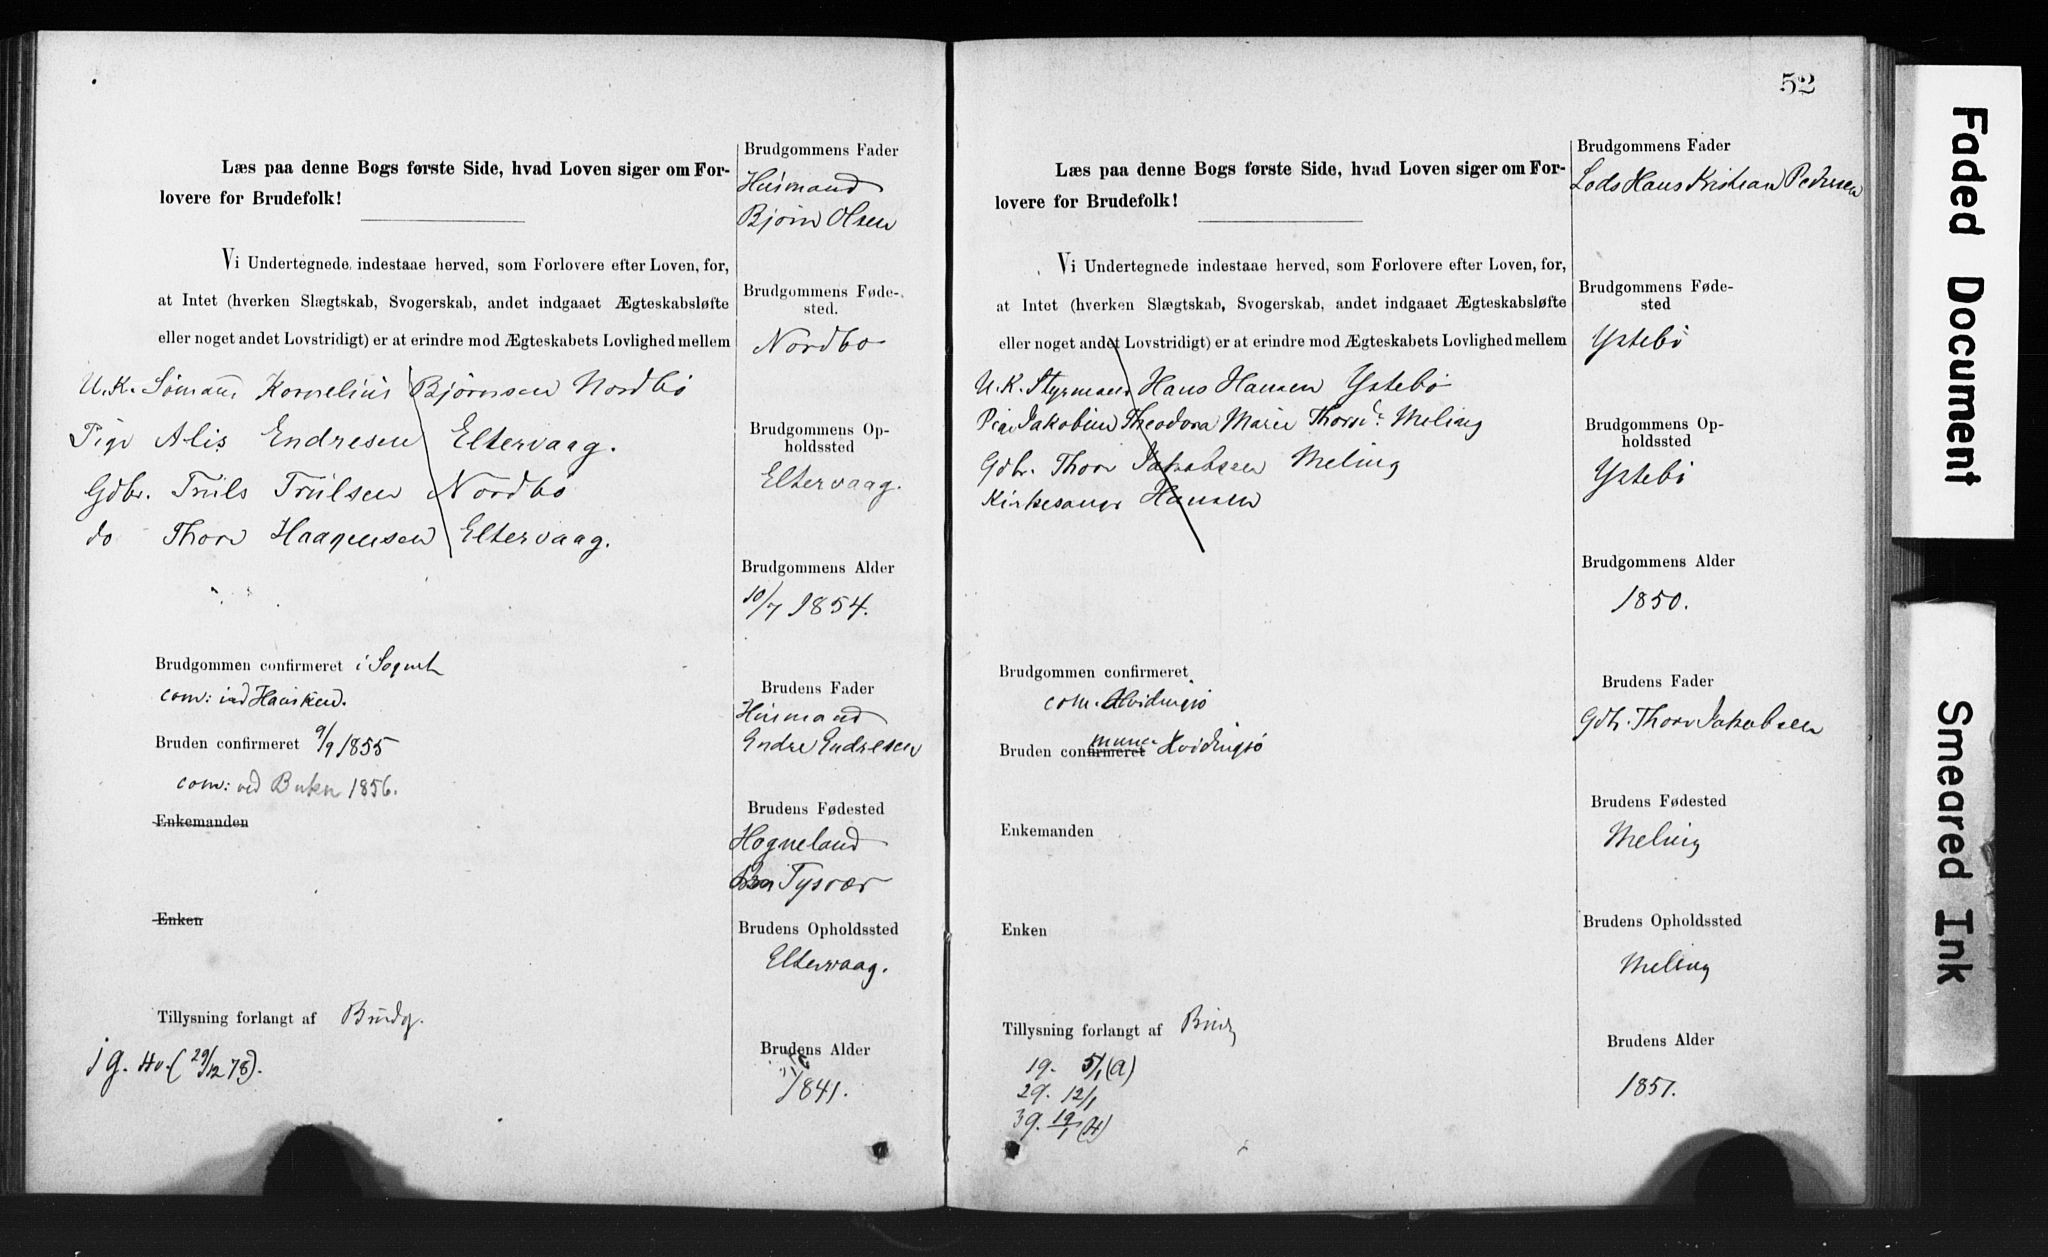 Læs paa denne Bogs første Side, hvad Loven siger om For-
lovere for Brudefolk!
Vi Undertegnede indestaae herved, som Forlovere efter Loven, for,
at Intet (hverken Slægtskab, Svogerskab, andet indgaaet Ægteskabsløfte
eller noget andet Lovstridigt) er at erindre mod Ægteskabets Lovlighed mellem
U.K. Sömand Kornelius Björnsen Nordbö
Pige Alis Endresen Eltervaag.
Gdbr. Truls Trulsen Nordbö
do Thore Haagensen Eltervaag.
Brudgommen confirmeret i Sognet
com: ved Hausken.
Bruden confirmeret 9/9 1855
com: ved Buken 1856.
Enkemanden
Enken
Tillysning forlangt af Brudg.
1g. Hv. (29/12 78).
Brudgommens Fader
Husmand
Bjørn Olsen
Brudgommens Føde-
sted.
Nordbo
Brudgommens Op-
holdssted
Eltervaag.
Brudgommens Alder
10/7 1854.
Brudens Fader
Husmand
Endre Endresen
Brudens Fødested
Hogneland
Tysvær
Brudens Opholdssted
Eltervaag.
Brudens Alder
1841.
52
Læs paa denne Bogs første Side, hvad Loven siger om For-
lovere for Brudefolk!
Vi Undertegnede indestaae herved, som Forlovere efter Loven, for,
at Intet (hverken Slægtskab, Svogerskab, andet indgaaet Ægteskabsløfte
eller noget andet Lovstridigt) er at erindre mod Ægteskabets Lovlighed mellem
U.K. Styrmand Hans Hansen Ystebö
Pige Jakobine Theodora Marie Thorsd. Meling
Gdbr. Thore Jakobsen Meling
Kirkesanger Hansen
Brudgommen confirmeret
com. Hvidingsö
Bruden confirmeret muner Hvidingsö
Enkemanden
Enken
Tillysning forlangt af Brudg
1g. 5/1 (A)
2g. 12/1
3g. 19/1 (H)
Brudgommens Fader
Lods Hans Kristian Pedersen
Brudgommens Føde-
sted
Ystebö
Brudgommens Op-
holdssted
Ystebö
Brudgommens Alder
1850.
Brudens Fader
Gdb. Thore Jakobsen
Brudens Fødested
Meling
Brudens Opholdssted
Meling
Brudens Alder
1851.
Faded Document
Smeared Ink